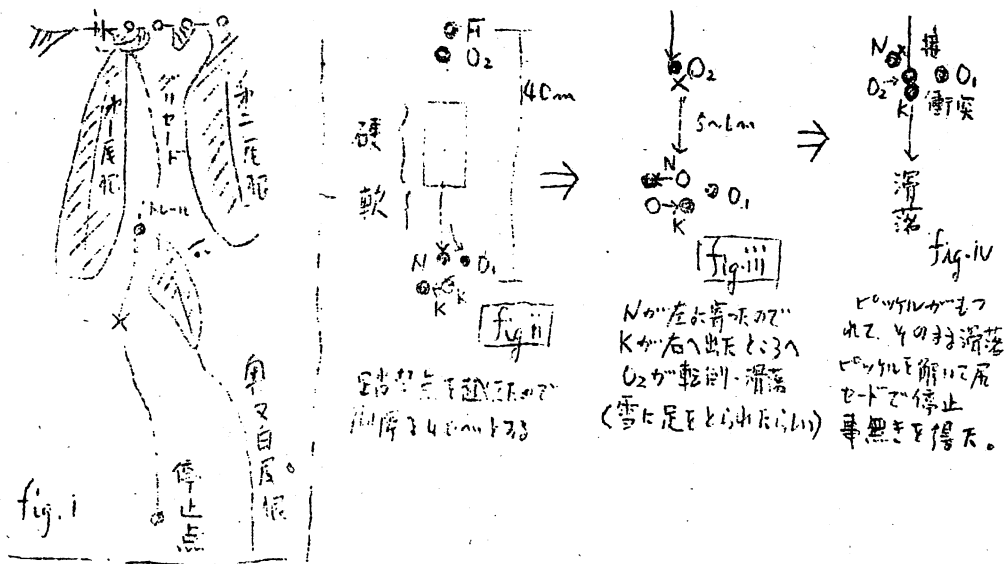 第二尾根
グリセード
トレール
奥又白尾根
停止点
fig. i
H
O₂
40m
硬
軟
N
O₁
K
K
fig ii
O₂
N
O₁
K
fig.iii
Nが左に寄ったので
Kが右へ出たところへ
O₂が転倒・滑落
(雪に足をとられたらしい)
N
接
O₂
O₁
K
衝突
滑落
fig.iv
ピッケルがもつ
れて、そのまま滑落
ピッケルを解いて尻
セードで停止
事無きを得た。